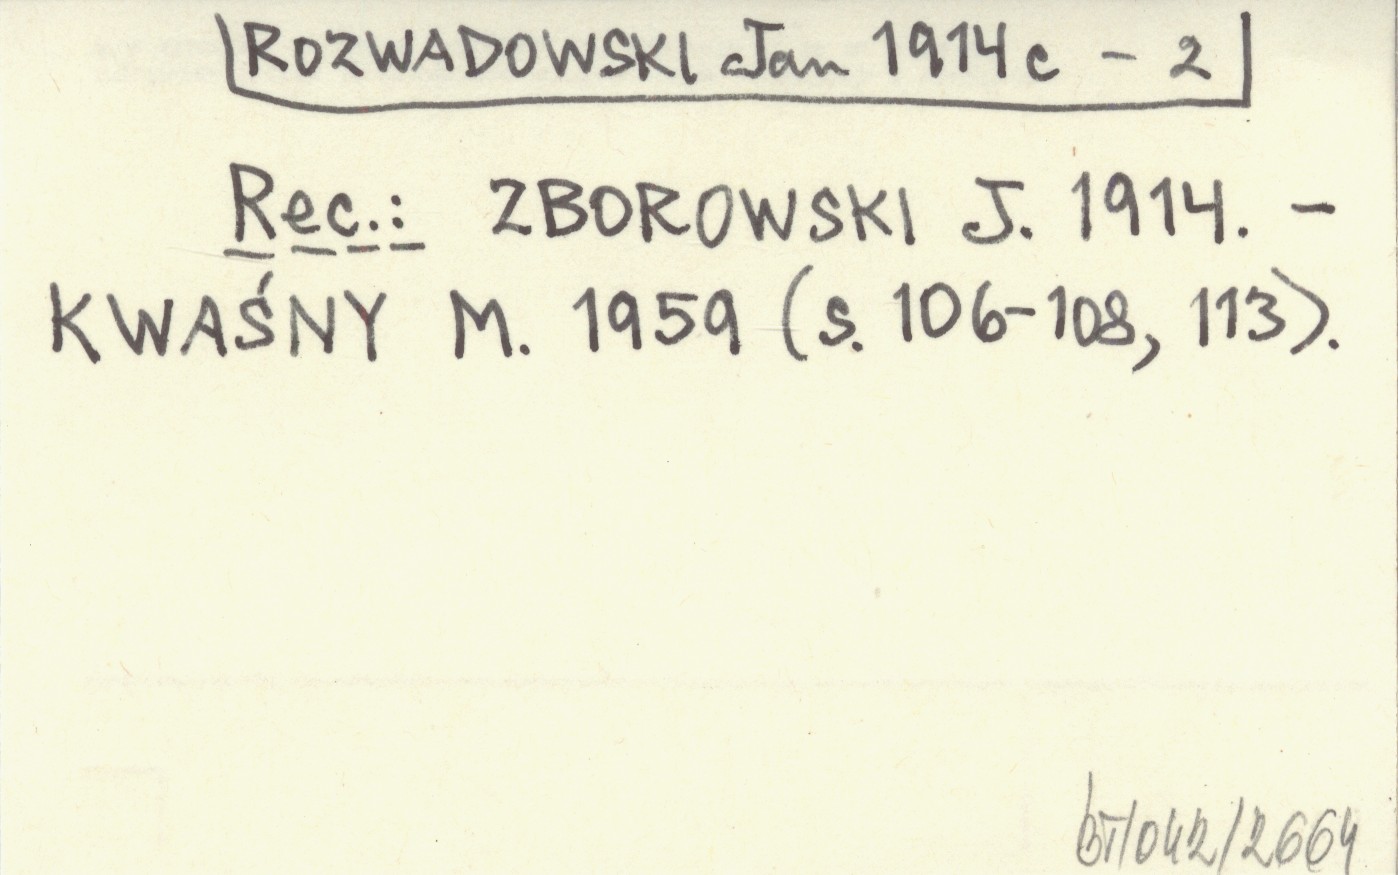 ROZWADOWSKI Jan 1914c - 2
Rec.: ZBOROWSKI J. 1914. -
KWAŚNY M. 1959 (s. 106-108, 113).
BT/042/2664